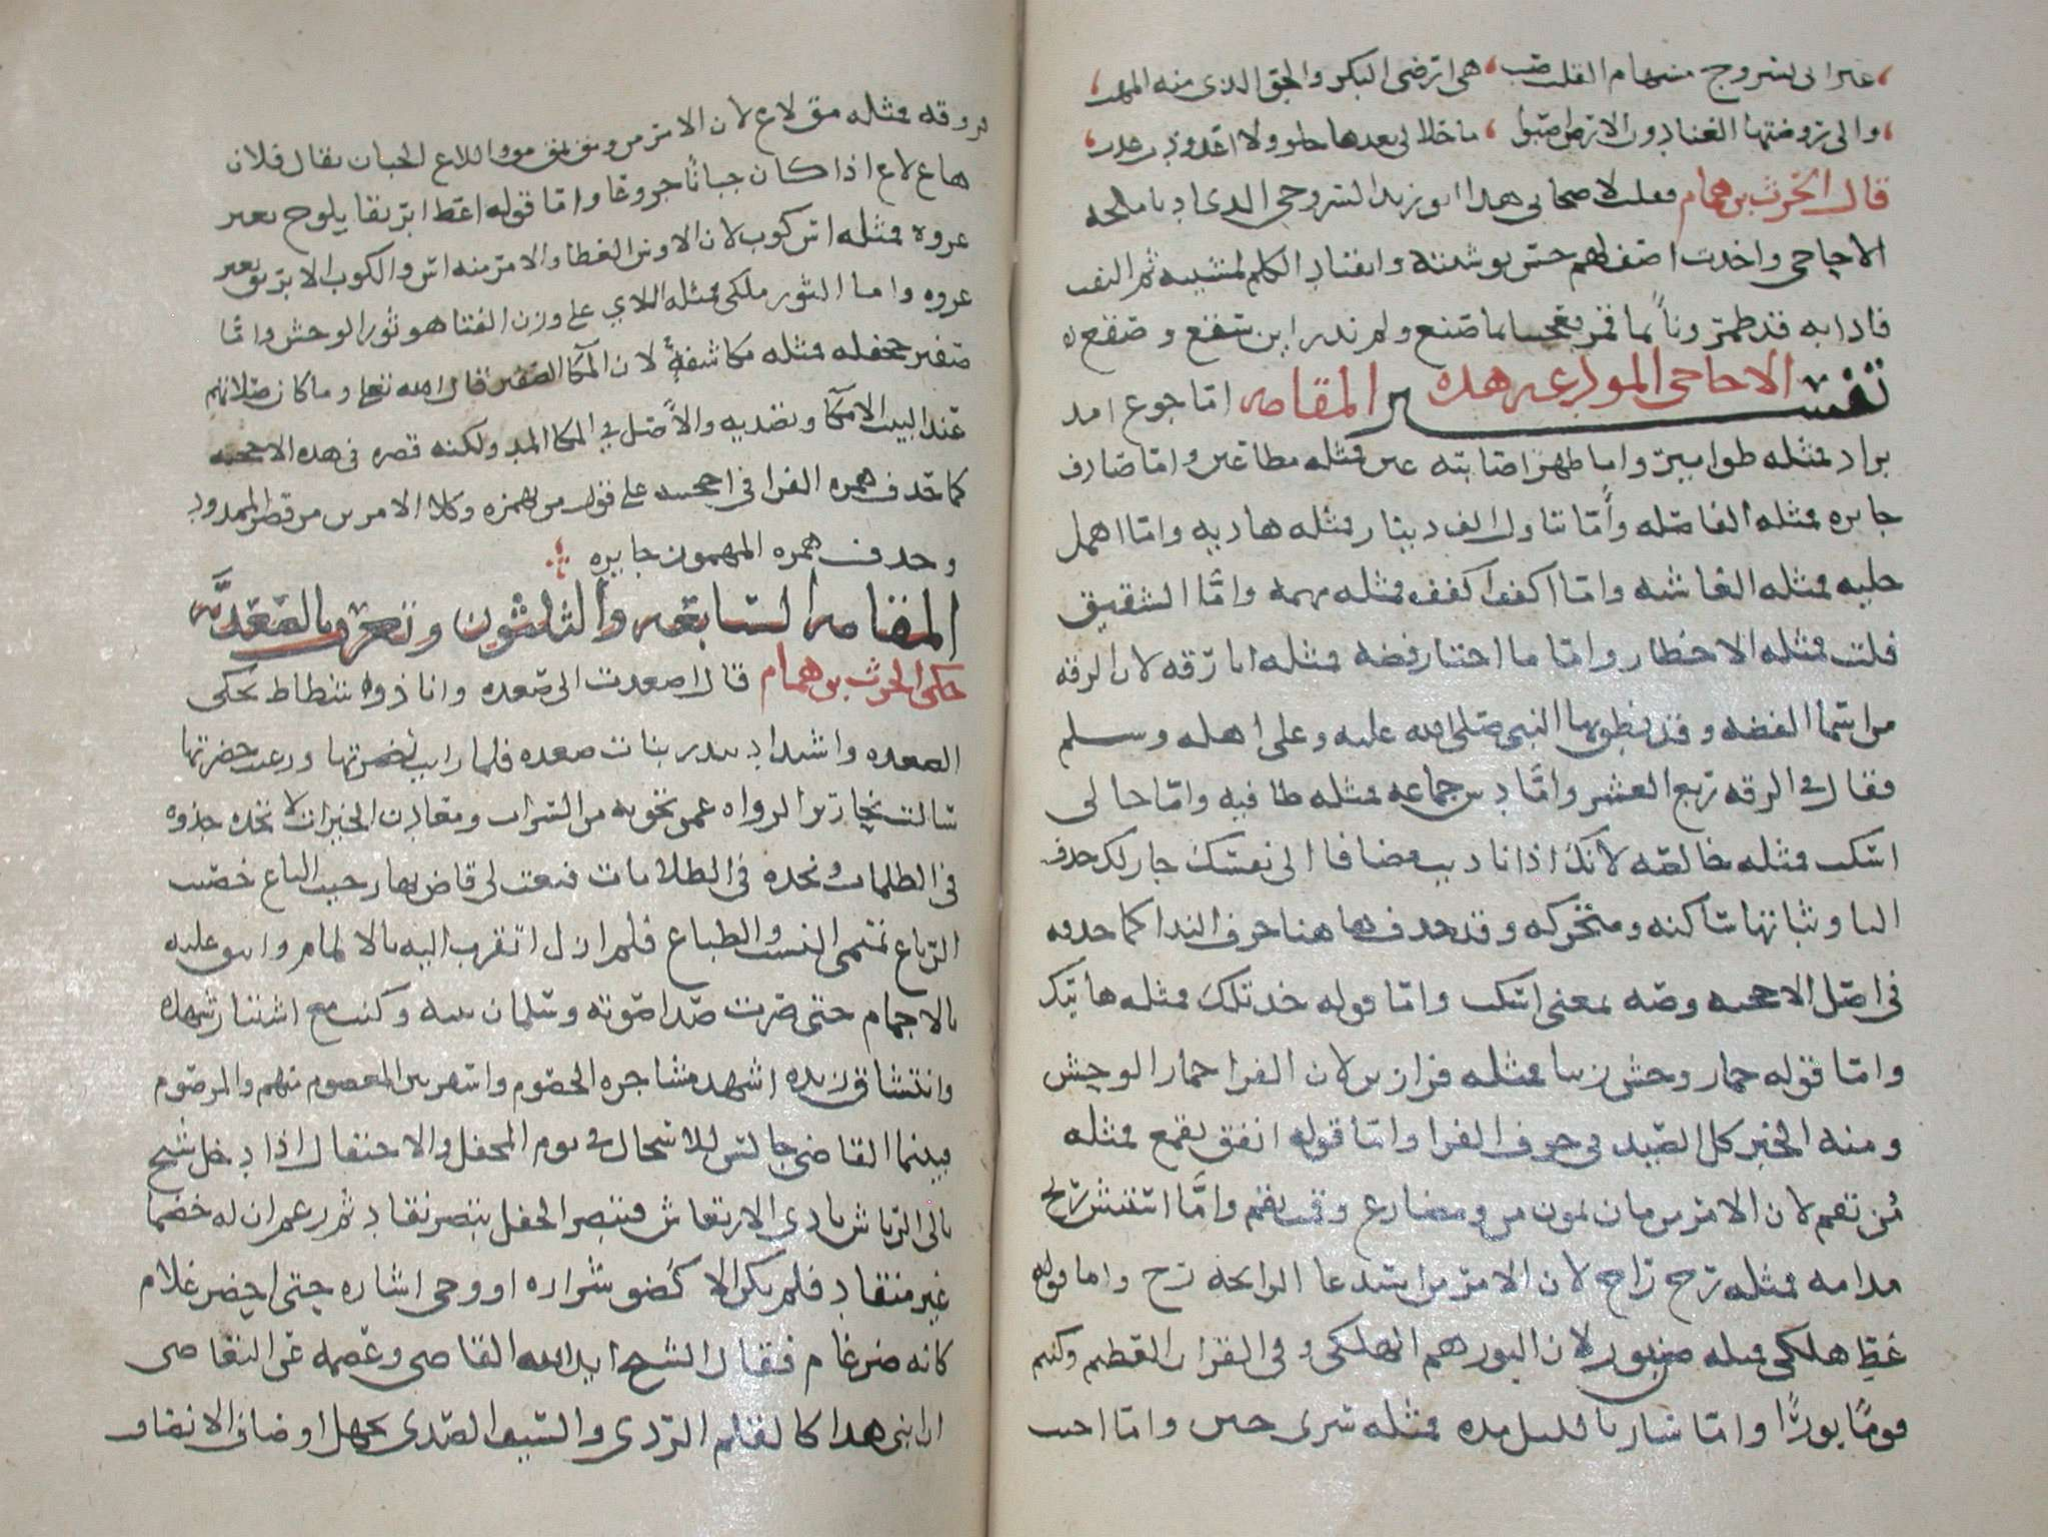 غير اني بسروج مستهام القلب صب هي ارضي البكر والجو الذي منه المهب
والى روضتها الغنا دون الارض اصبوا ما حلا لي بعدها حلو ولا اعذوذب عذب
قال الحرث بن همام فقلت لاصحابي هذا ابو زيد السروجي الذي ادنا ملحه
الاحاجي واخذت اصف لهم حسن توشيته وانقياد الكلم لمشيته ثم التفت
فاذا به قد طمر وناً بما قمر فعجبنا مما صنع ولم ندر اين سقع وصقع ه
تفسير الاحاجي المودعه هذه المقامه اما جوع امد
بزاد فمثله طوامير واما ظهر اصابته عين فمثله مطاعين واما صادف
جايزه فمثله الفاصله وأما تناول الف دينار فمثله هاديه واما اهمل
حليه فمثله الغاشيه واما اكفف اكفف فمثله مهمه واما الشقيق
فلت فمثله الاخطار واما ما اختار فضه فمثله ابا رقه لان الرقه
من اسما الفضه وقد نطق بها النبي صلى الله عليه وعلى اهله وسلم
فقال في الرقه ربع العشر واما دس جماعه فمثله طا فيه واما خالي
اسكت فمثله خالصه لانك اذا ناديت مضافا الى نفسك جاز لك حذف
اليا وثباتها ساكنه ومتحركه وقد حذف ها هنا حرف الندا كما حذفه
في اصل الاحجيه وصه بمعنى اسكت واما قوله خذ تلك فمثله هاتيك
واما قوله حمار وحش زينا فمثله فرازين لان الفرا حمار الوحش
ومنه الخبر كل الصيد في جوف الفرا واما قوله انفق تقمع فمثله
مُن تقم لان الامر من مان يمون من ومضارع وقمت تقم واما استنش ريح
مدامه فمثله رح راح لان الامر من استدعا الرايحه رح واما قوله
غط هلكي فمثله صنبور لان البور هم الهلكى وفي القران العظيم وكنتم
قوماً بوراً واما سار بالليل مده فمثله سرى حين واما احبب
فروقه فمثله مق لاع لان الامر من ومق يمق مق واللاع الجبان يقال فلان
هاع لاع اذا كان جباناً جزوعا واما قوله اعط ابريقا يلوح بغير
عروه فمثله اس كوب لان الاوس العطا والامر منه اس والكوب الابريق بغير
عروه واما الثور ملكي فمثله اللاي على وزن القنا هو ثور الوحش واما
صفير جحفله فمثله مكاشفةٌ لان المكا الصفير قال الله تعالى وما كان صلاتهم
عند البيت الا مكا وتصديه والاصل في المكا المد ولكنه قصره في هذه الاحجيه
كما حذف همزه الفرا في احجيته على قول من همزه وكلا الامرين من قصر الممدود
وحذف همزه المهموز جايزه
المقامه السابعه والثلثون وتعرف بالصعديه
حكى الحرث بن همام قال اصعدت الى صعده وانا ذو شطاط يحكى
الصعده واشتداد يبدر بنات صعده فلما رايت نضرتها ورعيت خضرتها
سالت نحارير الرواه عمن تحويه من السراه ومعادن الخيرات لاتخذه جذوه
في الظلمات ونجده في الظلامات فنعت لي قاض بها رحيب الباع خصيب
الرباع تميمي النسب والطباع فلم ازل اتقرب اليه بالالمام وانفق عليه
بالاجمام حتى صرت صدا صوته وسلمان بيته وكنت مع اشتيار شهده
وانتشاق رنده اشهد مشاجره الخصوم واسفر بين المعصوم منهم والموصوم
فبينما القاضي جالس للاسجال في يوم المحفل والاحتفال اذا دخل شيخ
بالي الرياش بادي الارتعاش فتبصر الحفل تبصر نقاد ثم زعم ان له خصما
غير منقاد فلم يكن الا كضو شراره او وحي اشاره حتى احضر غلام
كانه ضرغام فقال الشيخ ايد الله القاضي وعصمه عن التغاضي
ان ابني هذا كالقلم الردي والسيف الصدي يجهل اوصاف الانصاف